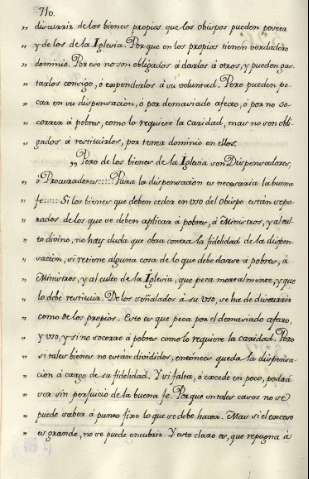 710.
„ discurrir de los bienes propios que los obispos pueden poseer
„ y de los de la Iglesia. Porque en los propios tienen verdadero
„ dominio. Por eso no son obligados à darlos à otros, y pueden gas-
„ tarlos consigo, ò expenderlos à su voluntad. Pero pueden pe-
„ car en su dispensacion, ò por demasiado afecto, ò por no so-
„ correr à pobres, como lo requiere la caridad, mas no son obli-
„ gados à restituirlos, por tener dominio en ellos.
„ Pero de los bienes de la Iglesia son Dispensadores,
„ ò Procuradores.... Para la dispensacion es necesaria la buena
„ fe... Si los bienes que deben ceder en uso del Obispo estan sepa-
„ rados de los que se deben aplicar à pobres, à Ministros, y al cul-
„ to divino, no hay duda que obra contra la fidelidad de la dispen-
„ sacion, si retiene alguna cosa de lo que debe darse à pobres, à
„ Ministros, y al culto de la Iglesia, que peca mortalmente, y que
„ lo debe restituir. De los señalados à su uso, se ha de discurrir
„ como de los propios. Esto es que peca por el demasiado afecto,
„ y uso, y si no socorre à pobres como lo requiere la caridad. Pero
„ si tales bienes no estan divididos, entonces queda la dispensa-
„ cion à cargo de su fidelidad. Y si falta, ò excede en poco, podrà
„ ser sin perjuicio de la buena fe. Porque en tales casos no se
„ puede saber à punto fixo lo que se debe hacer. Mas si el exceso
„ es grande, no se puede encubrir. Y esto claro es, que repugna à